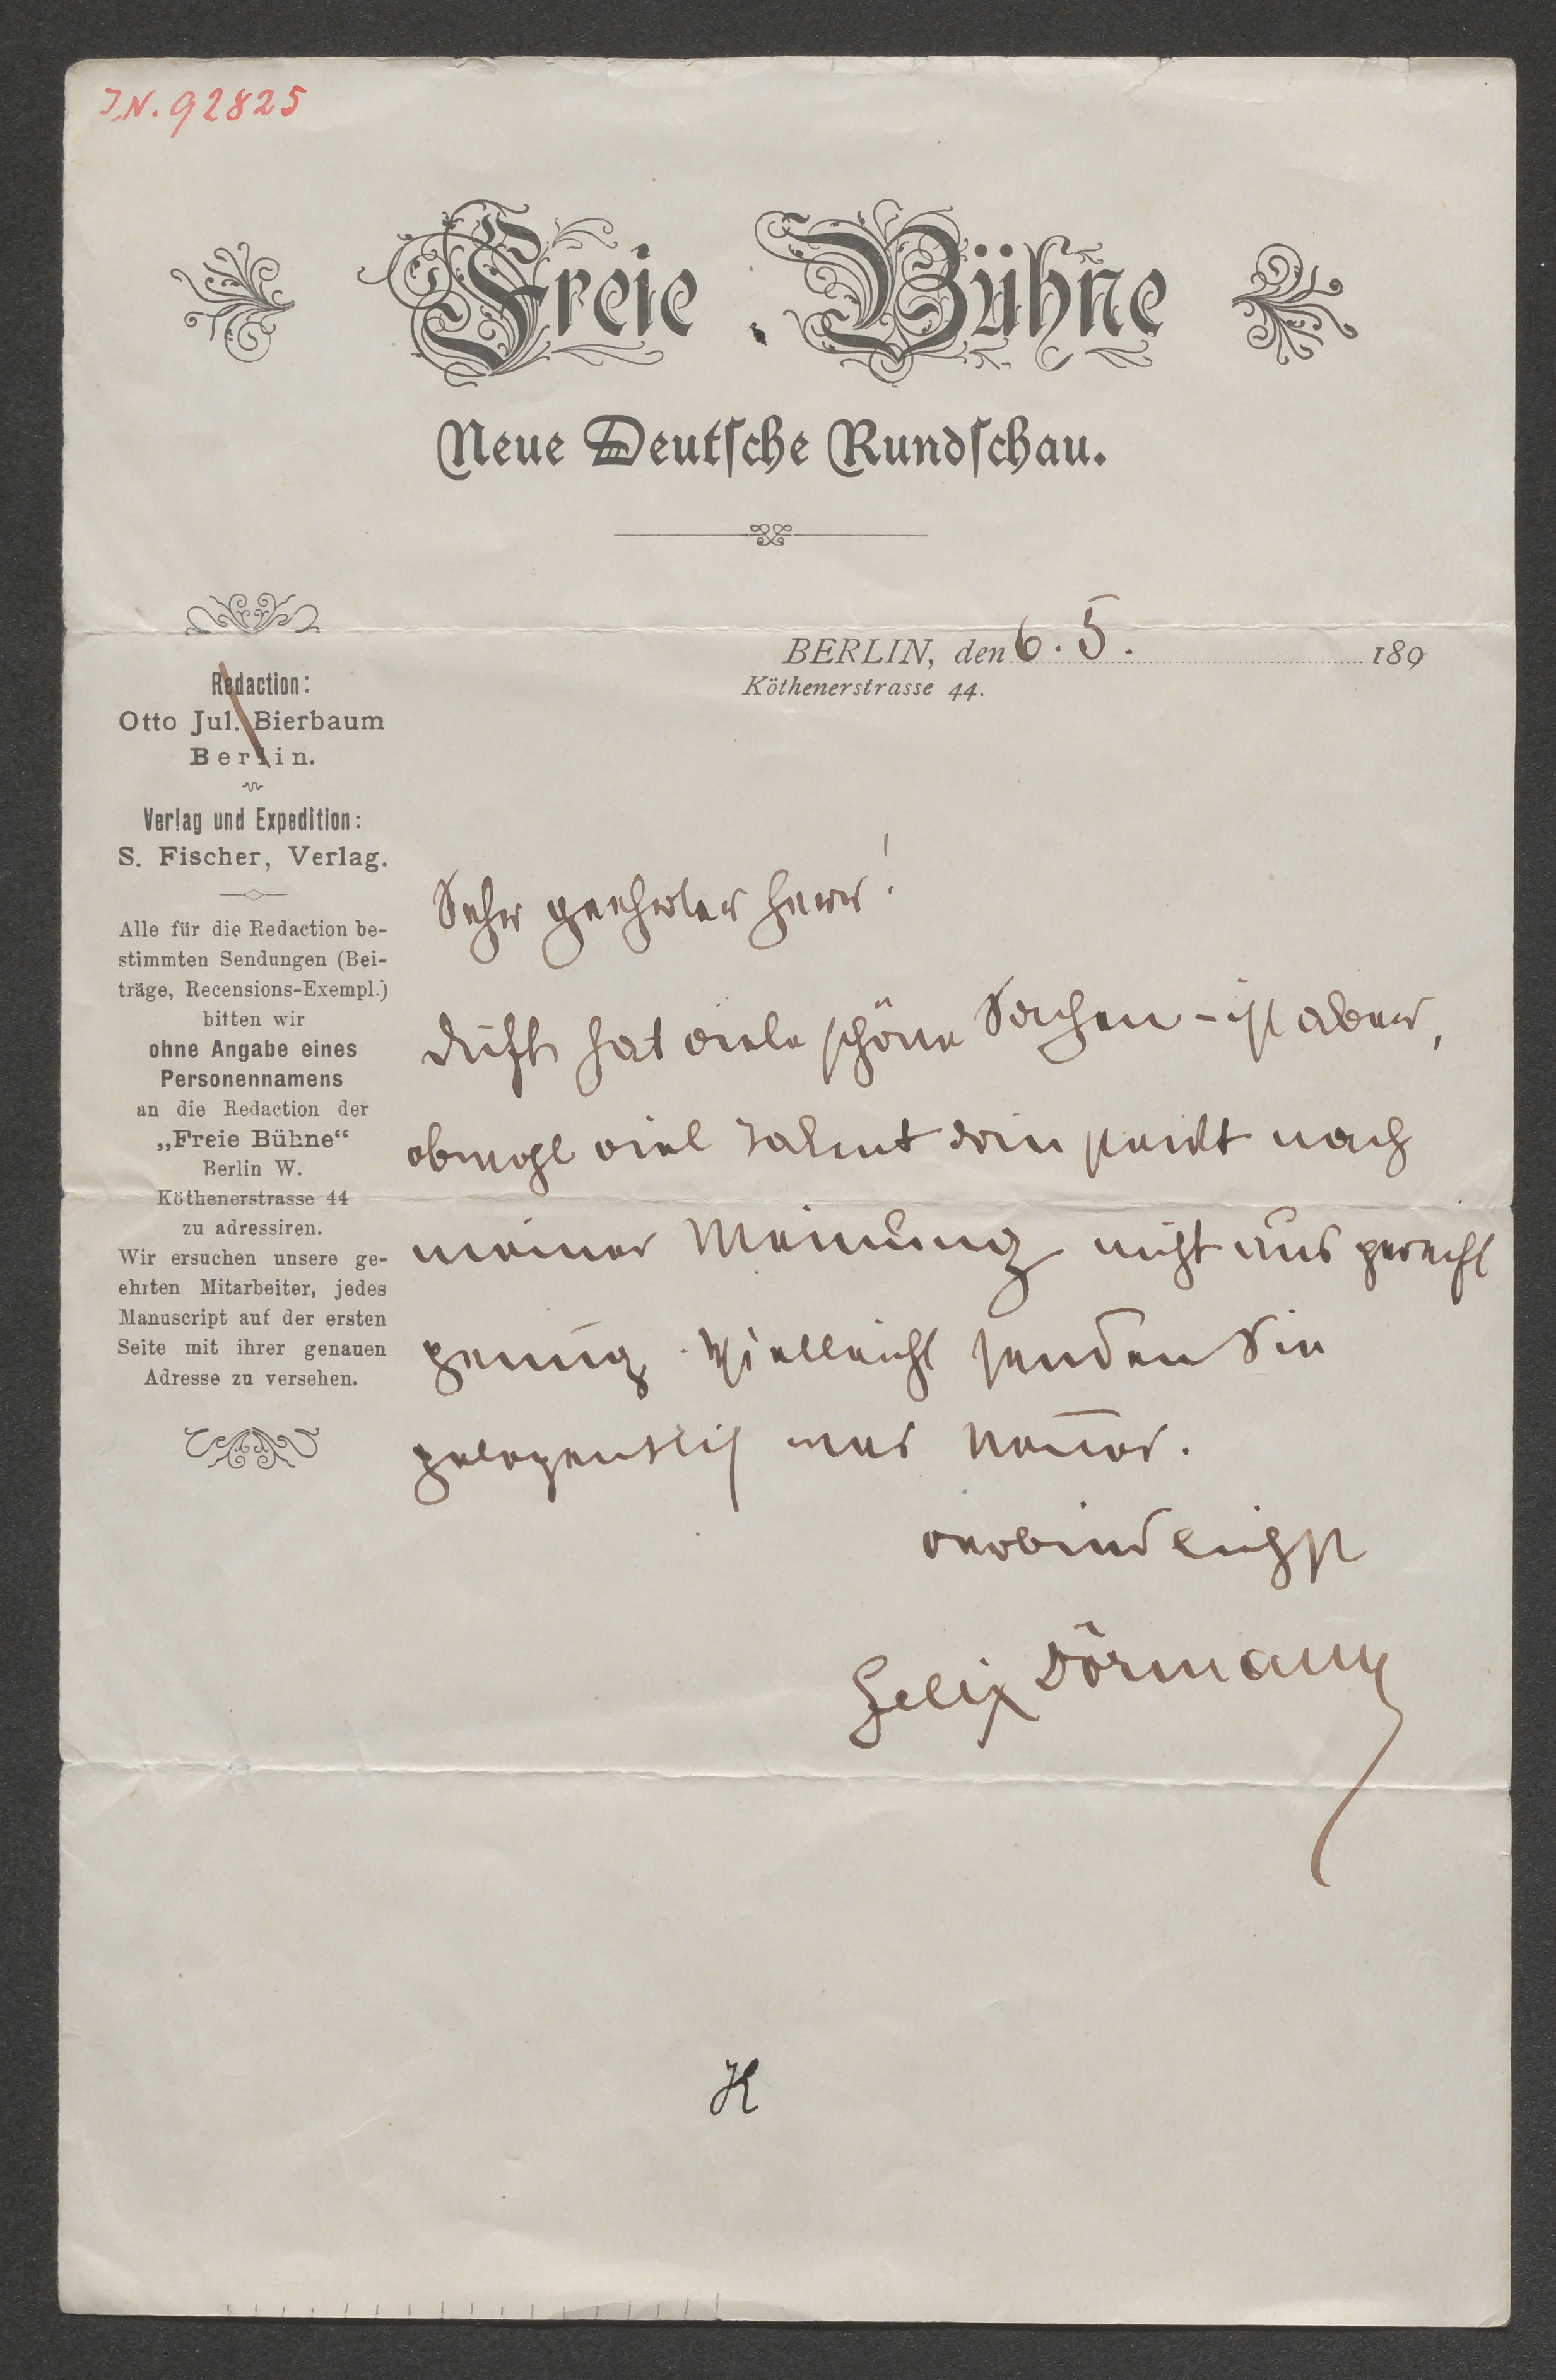 J.N. 92825
Freie Bühne
Neue Deutsche Rundschau.
BERLIN, den 6. 5. 189
Köthenerstrasse 44.
Redaction:
Otto Jul. Bierbaum
Berlin.
Verlag und Expedition:
S. Fischer, Verlag.
Alle für die Redaction be-
stimmten Sendungen (Bei-
träge, Recensions-Exempl.)
bitten wir
ohne Angabe eines
Personennamens
an die Redaction der
„Freie Bühne“
Berlin W.
Köthenerstrasse 44
zu adressiren.
Wir ersuchen unsere ge-
ehrten Mitarbeiter, jedes
Manuscript auf der ersten
Seite mit ihrer genauen
Adresse zu versehen.
Sehr geehrter Herr!
hat viele schöne Sachen – ist aber,
obwohl viel Talent drin steckt nach
meiner Meinung nicht ausgereift
genug. Vielleicht senden Sie
gelegentlich was Neues.
verbindlichst
Felix Dörmann
H